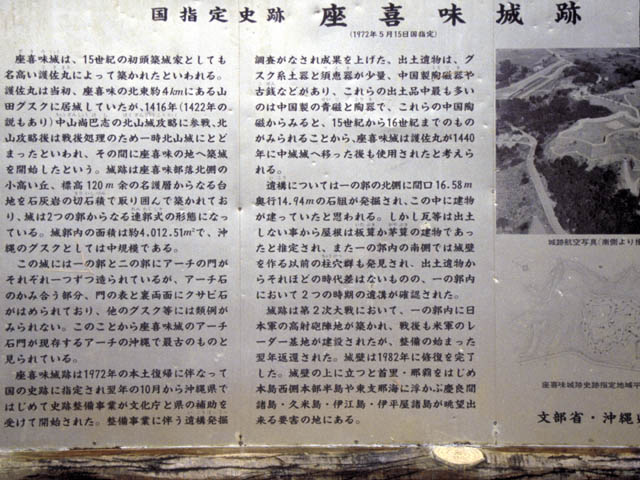 国指定史跡 座喜味城跡
(1972年5月15日国指定)
座喜味城は、15世紀の初頭築城家としても
名高い護佐丸によって築かれたといわれる。
護佐丸は当初、座喜味の北東約4kmにある山
田グスクに居城していたが、1416年(1422年の
説もあり)中山尚巴志の北山城攻略に参戦、北
山攻略後は戦後処理のため一時北山城にとど
まったといわれ、その間に座喜味の地へ築城
を開始したという。城跡は座喜味部落北側の
小高い丘、標高120m余の名護層からなる台
地を石灰岩の切石積で取り囲んで築かれてお
り、城は2つの郭からなる連郭式の形態になっ
ている。城郭内の面積は約4,012.51㎡で、沖
縄のグスクとしては中規模である。
この城には一の郭と二の郭にアーチの門が
それぞれ一つずつ造られているが、アーチ石
のかみ合う部分、門の表と裏両面にクサビ石
がはめられており、他のグスク等には類例が
みられない。このことから座喜味城のアーチ
石門が現存するアーチの沖縄で最古のものと
見られている。
座喜味城跡は1972年の本土復帰に伴なって
国の史跡に指定され翌年の10月から沖縄県で
はじめて史跡整備事業が文化庁と県の補助を
受けて開始された。整備事業に伴う遺構発掘
調査がなされ成果を上げた。出土遺物は、グ
スク系土器と須恵器が少量、中国製陶磁器や
古銭などがあり、これらの出土品中最も多い
のは中国製の青磁と陶器で、これらの中国陶
磁からみると、15世紀から16世紀までのもの
がみられることから、座喜味城は護佐丸が1440
年に中城城へ移った後も使用されたと考えら
れる。
遺構については一の郭の北側に間口16.58m
奥行14.94mの石組が発掘され、この中に建物
が建っていたと思われる。しかし瓦等は出土
しない事から屋根は板葺か茅葺の建物であっ
たと推定され、また一の郭内の南側では城壁
を作る以前の柱穴群も発見され、出土遺物か
らそれほどの時代差はないものの、一の郭内
において2つの時期の遺溝が確認された。
城跡は第2次大戦において、一の郭内に日
本軍の高射砲陣地が築かれ、戦後も米軍のレ
ーダー基地が建設されたが、整備の始まった
翌年返還された。城壁は1982年に修復を完了
した。城壁の上に立つと首里・那覇をはじめ
本島西側本部半島や東支那海に浮かぶ慶良間
諸島・久米島・伊江島・伊平屋諸島が眺望出
来る要害の地にある。
城跡航空写真(南側より撮
座喜味城跡史跡指定地域平
文部省・沖縄県